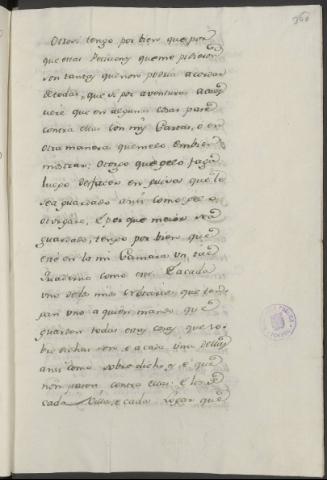 360
Otrosi tengo por bien que por
que estas Peticiones que me pidieron
son tantas que non podria acordar
de todas, que si por aventura acaes
ciere que en algunas cosas pare
contra ellas con mis Cartas, o en
otra manera que me lo embien
mostrar, Otorgo que gelo faga
luego desfacer en guisa que le
sea guardado ansi como ges o
otorgado, E por que mejor sea
guardado, tengo por bien que
esté en la mi Camara un tal
quaderno como este E a cada
uno de los mis escrivanos que tenga
uno a quien mando que
guarden todas estas cosas que so
bre dichas son e a cada una dellas
ansi como sobre dicho es e que
non pasen contra ellas: e los de
cada Villa, e cada Logar que